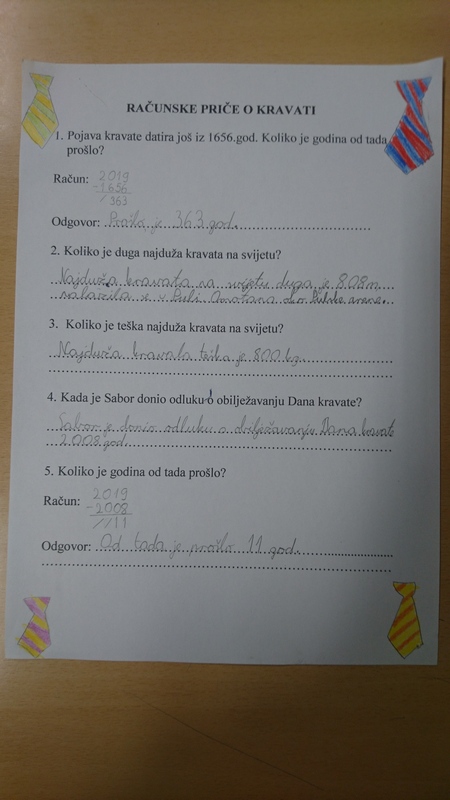 RAČUNSKE PRIČE O KRAVATI
1. Pojava kravate datira još iz 1656.god. Koliko je godina od tada
prošlo?
Račun: 2019
-1656
/ 363
Odgovor: Prošlo je 363 god.
2. Koliko je duga najduža kravata na svijetu?
Najduža kravata na svijetu duga je 808 m
nalazila se u Puli omotana oko Pulske arene.
3. Koliko je teška najduža kravata na svijetu?
Najduža kravata teška je 800 kg.
4. Kada je Sabor donio odluku o obilježavanju Dana kravate?
Sabor je donio odluku o obilježavanju Dana kravate
2008 god.
5. Koliko je godina od tada prošlo?
Račun: 2019
-2008
//11
Odgovor: Od tada je prošlo 11 god.